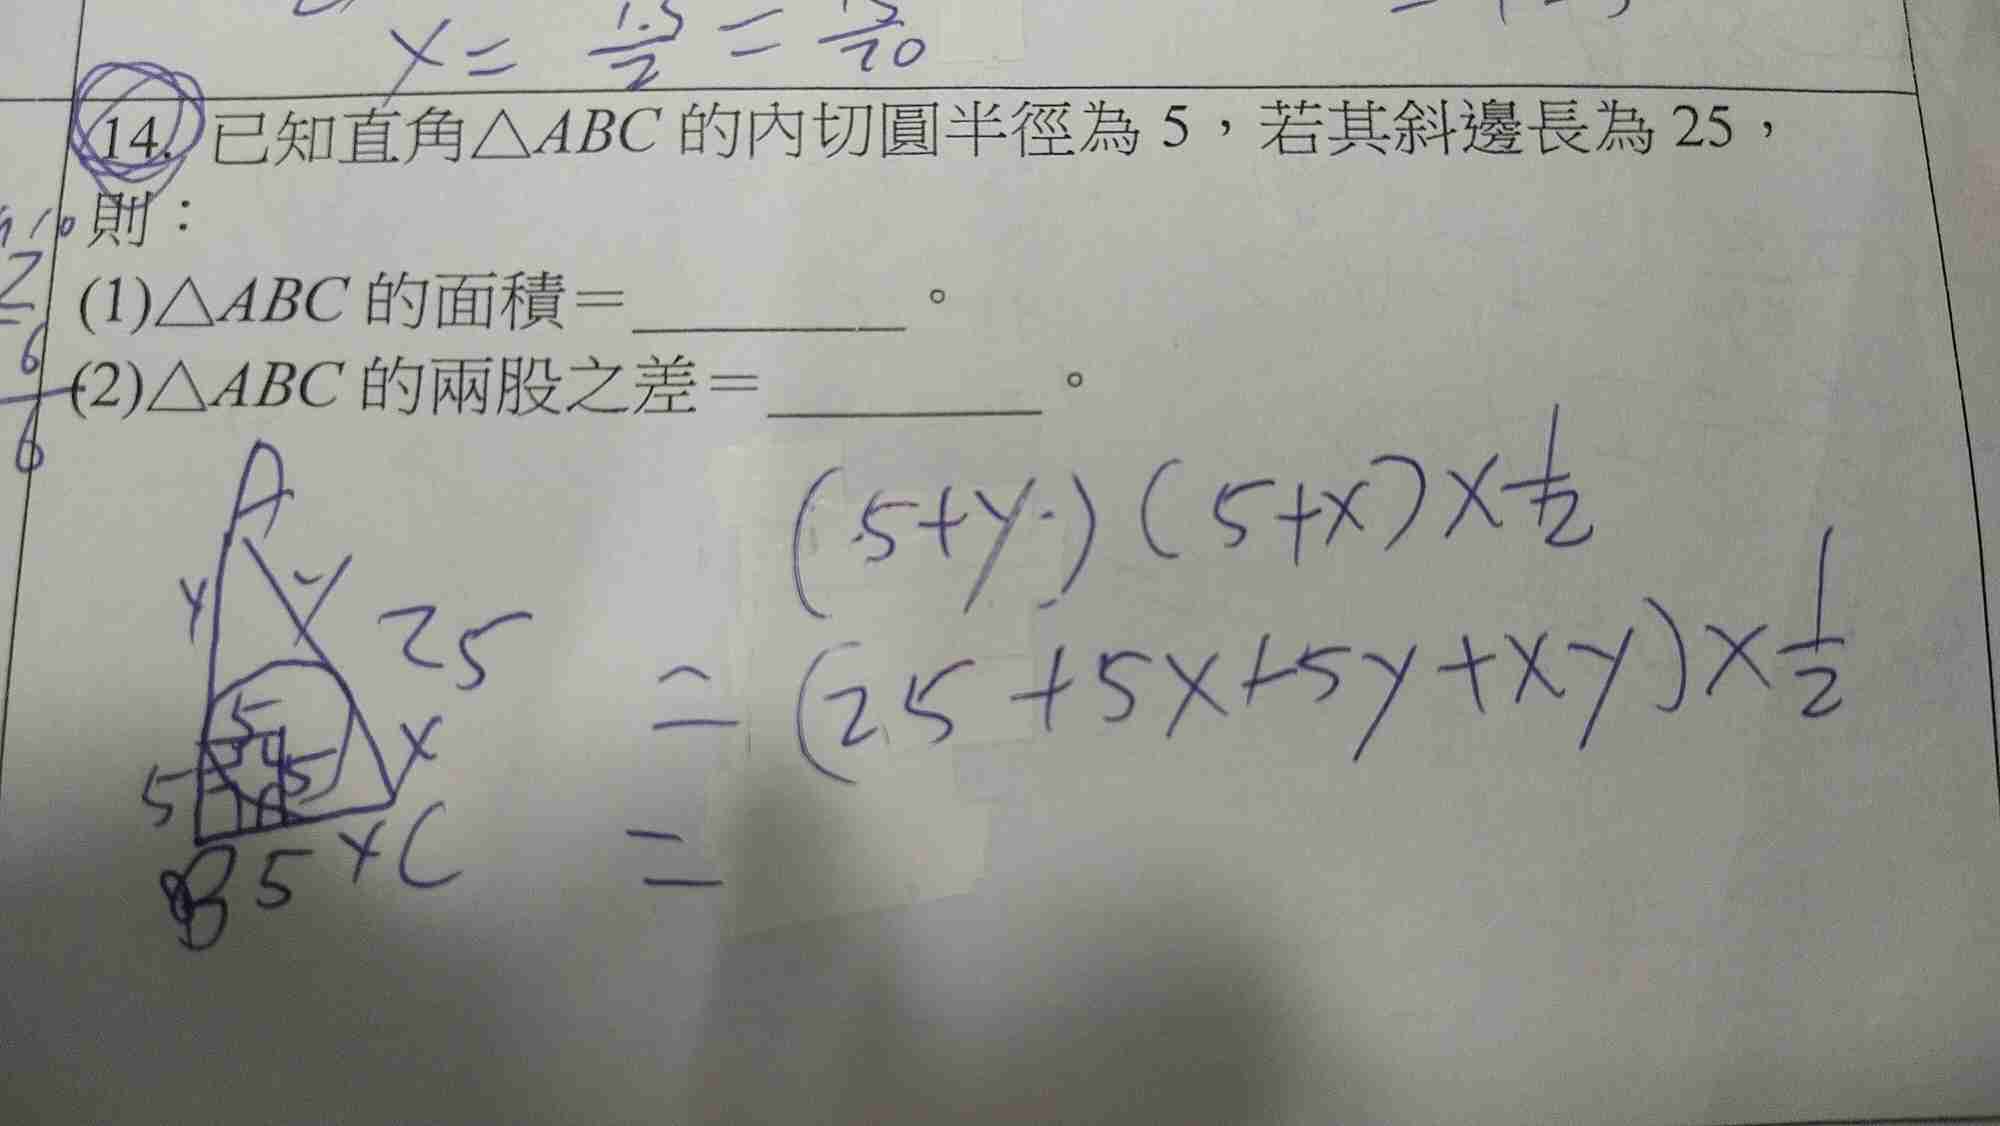 x = 1.5/2 = 15/20
14. 已知直角△ABC 的內切圓半徑為 5，若其斜邊長為 25，
則：
(1)△ABC 的面積＝________。
(2)△ABC 的兩股之差＝________。
A
y y 25
5 x
5 5
B 5 x C
(5+y)(5+x)×1/2
=(25+5x+5y+xy)×1/2
=